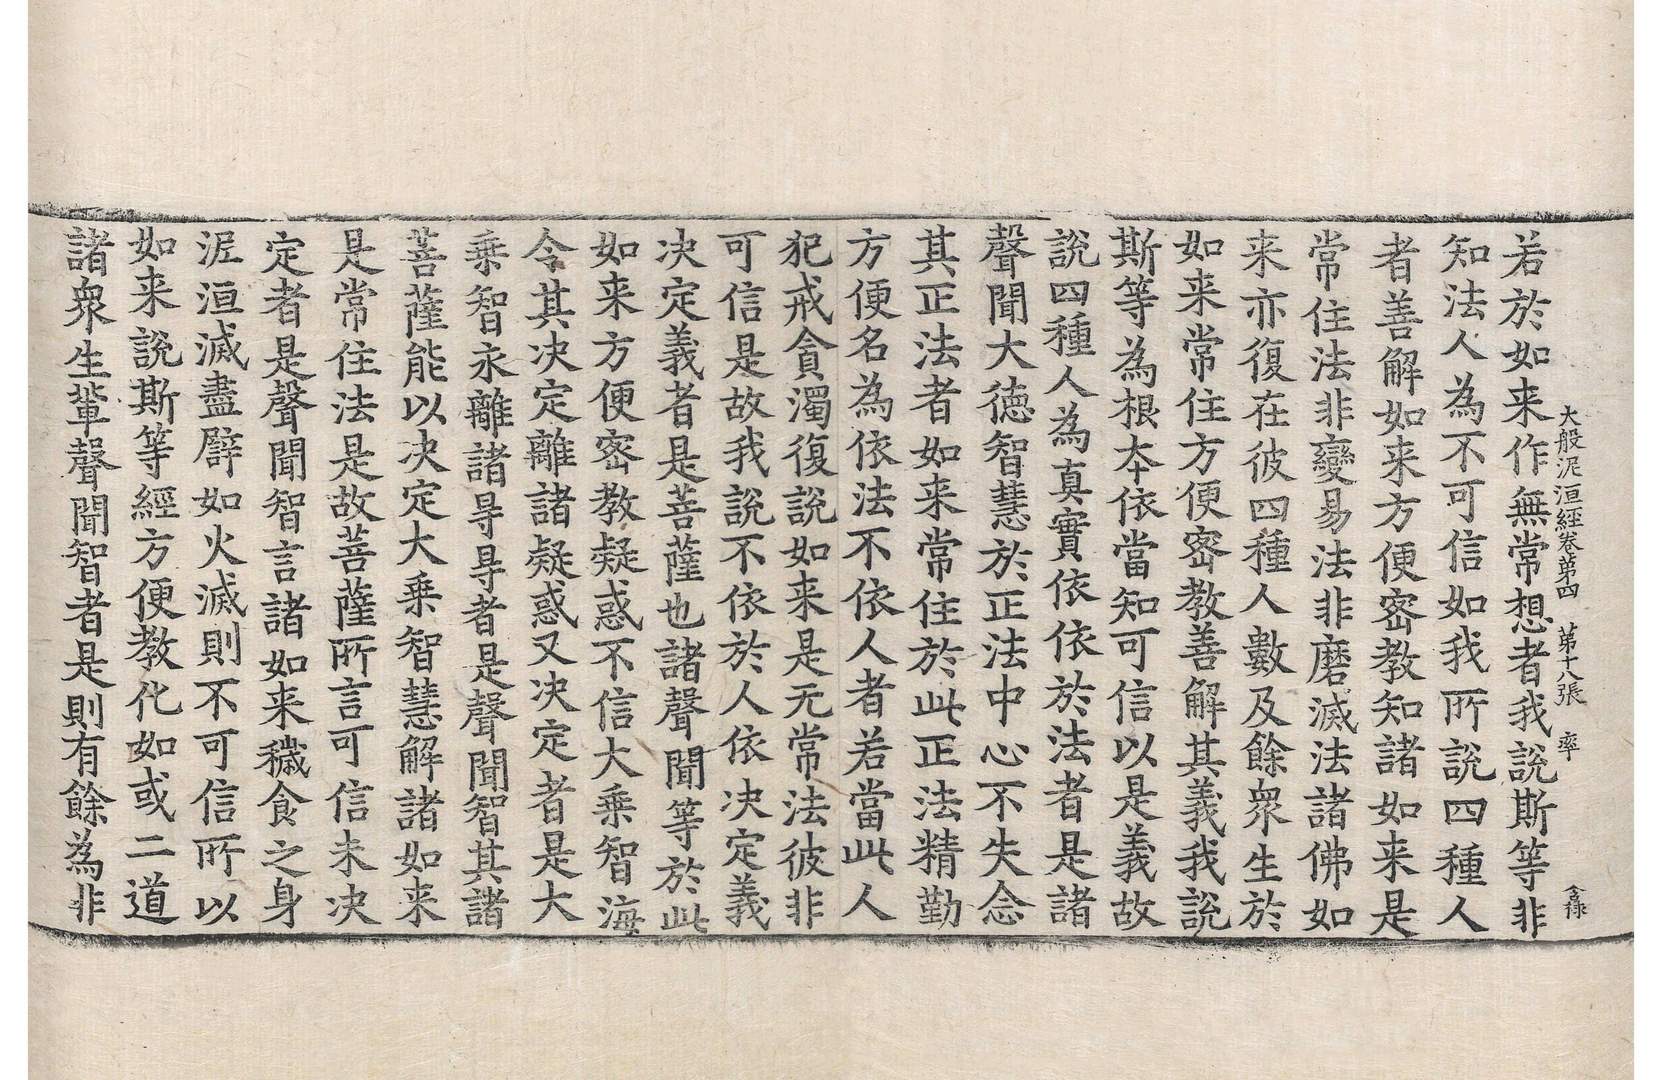 大般泥洹經卷第四　第十八張　率　金祿
若於如来作無常想者我說斯等非
知法人為不可信如我所說四種人
者善解如来方便密教知諸如来是
常住法非變易法非磨滅法諸佛如
来亦復在彼四種人數及餘眾生於
如来常住方便密教善解其義我說
斯等為根本依當知可信以是義故
說四種人為真實依依於法者是諸
聲聞大德智慧於正法中心不失念
其正法者如来常住於此正法精勤
方便名為依法不依人者若當此人
犯戒貪濁復說如来是无常法彼非
可信是故我說不依於人依决定義
决定義者是菩薩也諸聲聞等於此
如来方便密教疑惑不信大乘智海
令其决定離諸疑惑又决定者是大
乘智永離諸㝵㝵者是聲聞智其諸
菩薩能以决定大乘智慧解諸如来
是常住法是故菩薩所言可信未决
定者是聲聞智言諸如来穢食之身
泥洹滅盡譬如火滅則不可信所以
如来說斯等經方便教化如或二道
諸眾生輩聲聞智者是則有餘為非